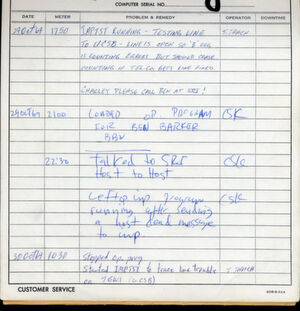 COMPUTER SERIAL NO.
DATE METER PROBLEM & REMEDY OPERATOR DOWNTIME
29Oct69 1750 IMPTST RUNNING - TESTING LINE
TO UCSB - LINE IS OPEN SO
IS COUNTING ERRORS BUT SHOULD CEASE
COUNTING IF TELCO GETS LINE FIXED.
CHARLEY PLEASE CALL BEN AT SRI!
29Oct69 2100 LOADED OP. PROGRAM CSK
FOR BEN BARKER
BBN
22:30 Talked to SRI CSK
Host to Host
Left op. imp program CSK
running after sending
a host dead message
to imp.
30Oct69 1030 Stopped op. prog
Started IMPTST to trace line trouble
to (UCSB)
CUSTOMER SERVICE